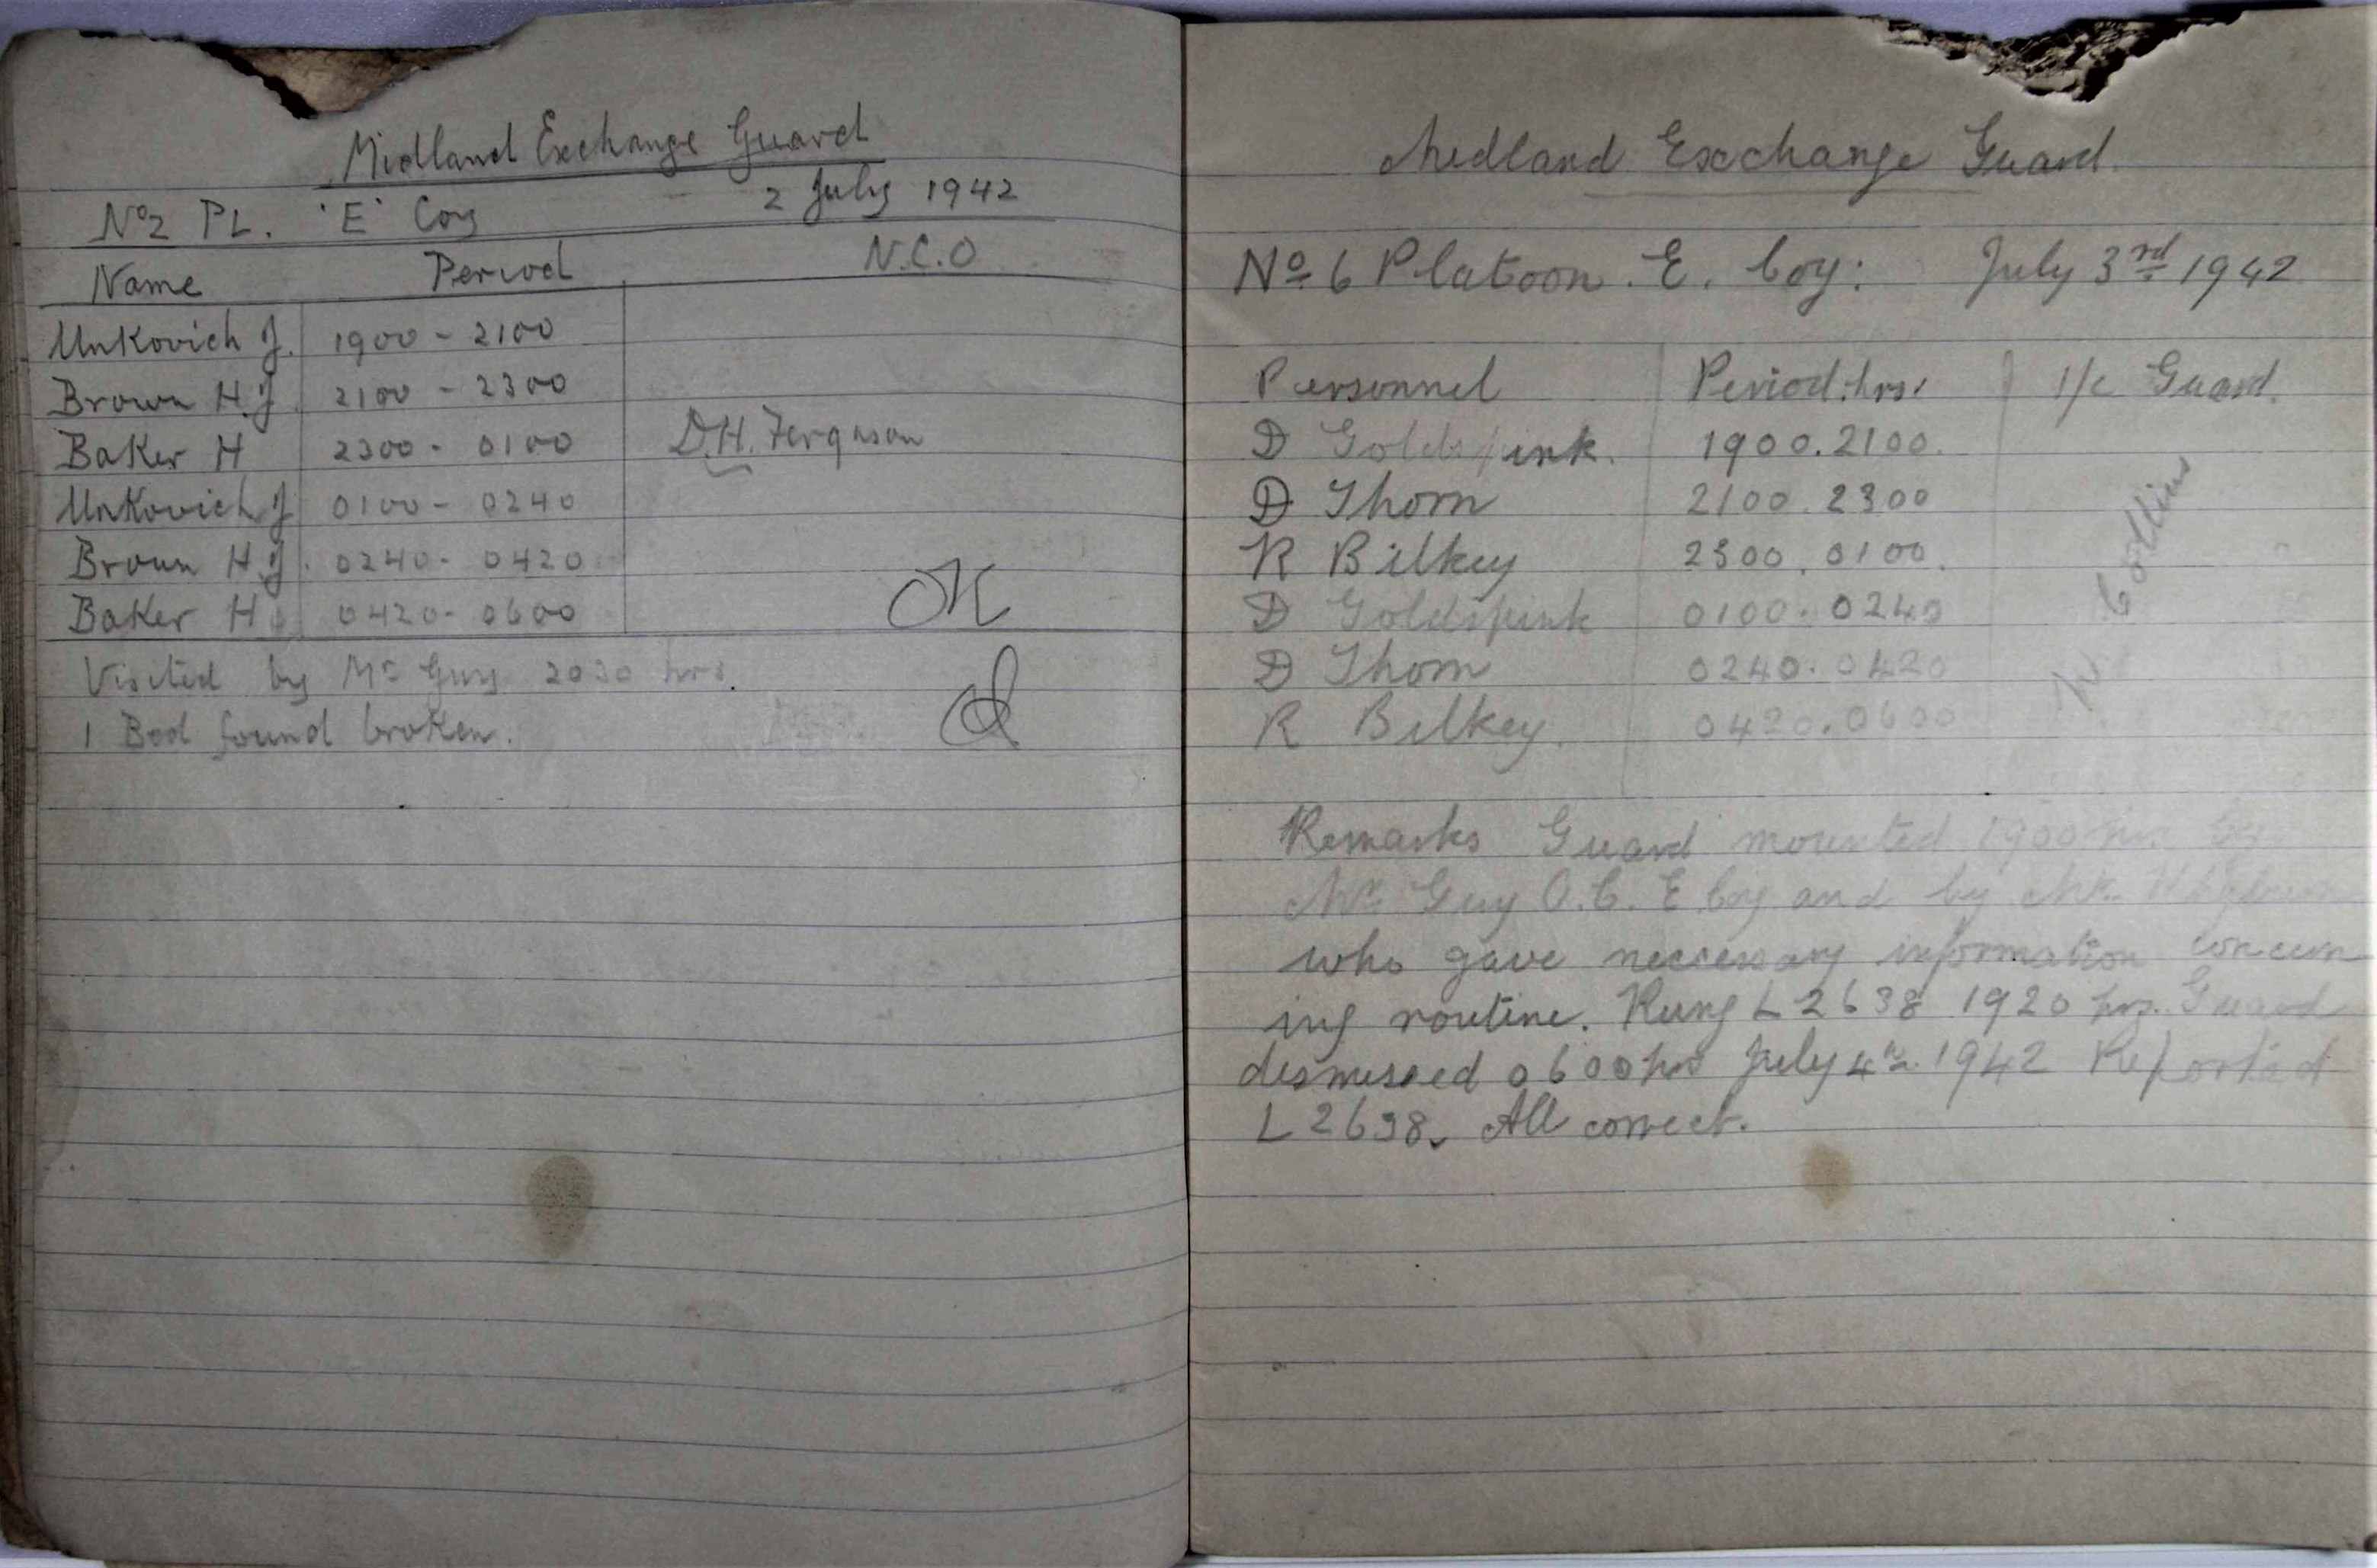 Midland Exchange Guard
No 2 PL. 'E' Coy 2 July 1942
Name Period N.C.O
Unkovich J. 1900 - 2100
Brown H.J. 2100 - 2300
Baker H 2300 - 0100 D.H. Ferguson
Unkovich J 0100 - 0240
Brown H.J. 0240 - 0420
Baker H 0420 - 0600
OK
Visited by Mr Guy 2030 hrs.
1 Bed found broken.
Midland Exchange Guard.
No 6 Platoon. E. Coy: July 3rd 1942
Personnel Period. hrs. I/c Guard.
D Goldspink. 1900. 2100.
D Thom 2100. 2300
R Bilkey 2300. 0100.
D Goldspink 0100. 0240
D Thom 0240. 0420
R Bilkey. 0420. 0600
Collins
Remarks Guard mounted 1900 hrs. By
Mr Guy O.C. E Coy and by Mr.
who gave necessary information concern
ing routine. Rung L2638 1920 hrs. Guard
dismissed 0600 hrs July 4th 1942 Reported
L2638. All correct.